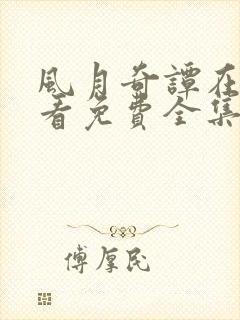 風月奇譚在
看免費全集
傅厚民